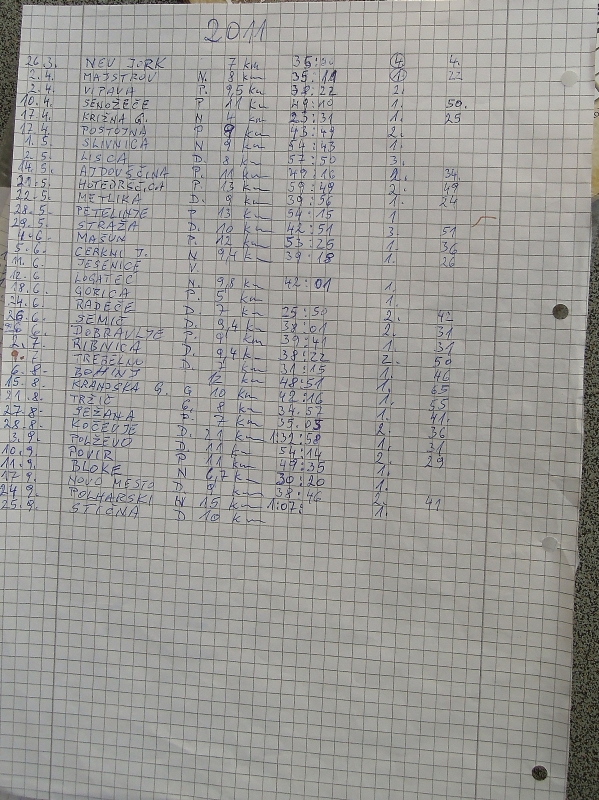 2011
26.3. NEW JORK 7 km 35:30 4. 4.
2.4. MAJSTROV N. 8 km 35:11 1 22
2.4. VIPAVA P. 9,5 km 38:22 2.
10.4. SENOŽEČE P. 11 km 49:10 1. 50.
17.4. KRIŽNA G. N 4 km 23:31 1. 25
17.4. POSTOJNA P 9 km 43:49 2.
1.5. SLIVNICA N 9 km 54:43 1.
2.5. LISCA D. 8 km 57:50 3.
14.5. AJDOVŠČINA P. 11 km 49:16 2. 34.
21.5. HOTEDRŠČICA P. 13 km 59:49 2. 49
22.5. METLIKA D. 9 km 39:56 1. 24
28.5. PETELINJE P 13 km 54:15 1
29.5. STRAŽA D. 10 km 42:51 3. 51
4.6. MAŠUN P. 12 km 53:25 1. 36
5.6. CERKNI J. N 9,4 km 39:18 1. 26
11.6. JESENICE V.
12.6. LOGATEC N. 9,8 km 42:01 1.
18.6. GORICA P. 5 km 1.
24.6. RADEČE D 7 km 25:50 2. 42
26.6. SEMIČ D. 9,4 km 38:01 2. 31
26.6. DOBRAVLJE P. 9 km 39:41 1. 31
2.7. RIBNICA D. 9,4 km 38:22 2. 50
9.7 TREBELNO D. 7 km 31:15 1. 46
6.8. BOHINJ 12 km 48:51 1. 65
15.8. KRANJSKA G. G 10 km 42:16 1. 55
21.8. TRŽIČ G. 8 km 34:57 1. 41.
27.8. SEŽANA P. 7 km 35:05 2. 36
28.8. KOČEVJE D. 21 km 1:32:58 1. 31
3.9. POLŽEVO D. 11 km 54:14 2. 29
10.9. POVIR P 11 km 49:35 1.
11.9. BLOKE N 6,7 km 30:20 1.
17.9. NOVO MESTO D. 9 km 38:46
24.9. POLHARSKI N 15 km 1:07: 2. 41
25.9. STIČNA D 10 km 1.